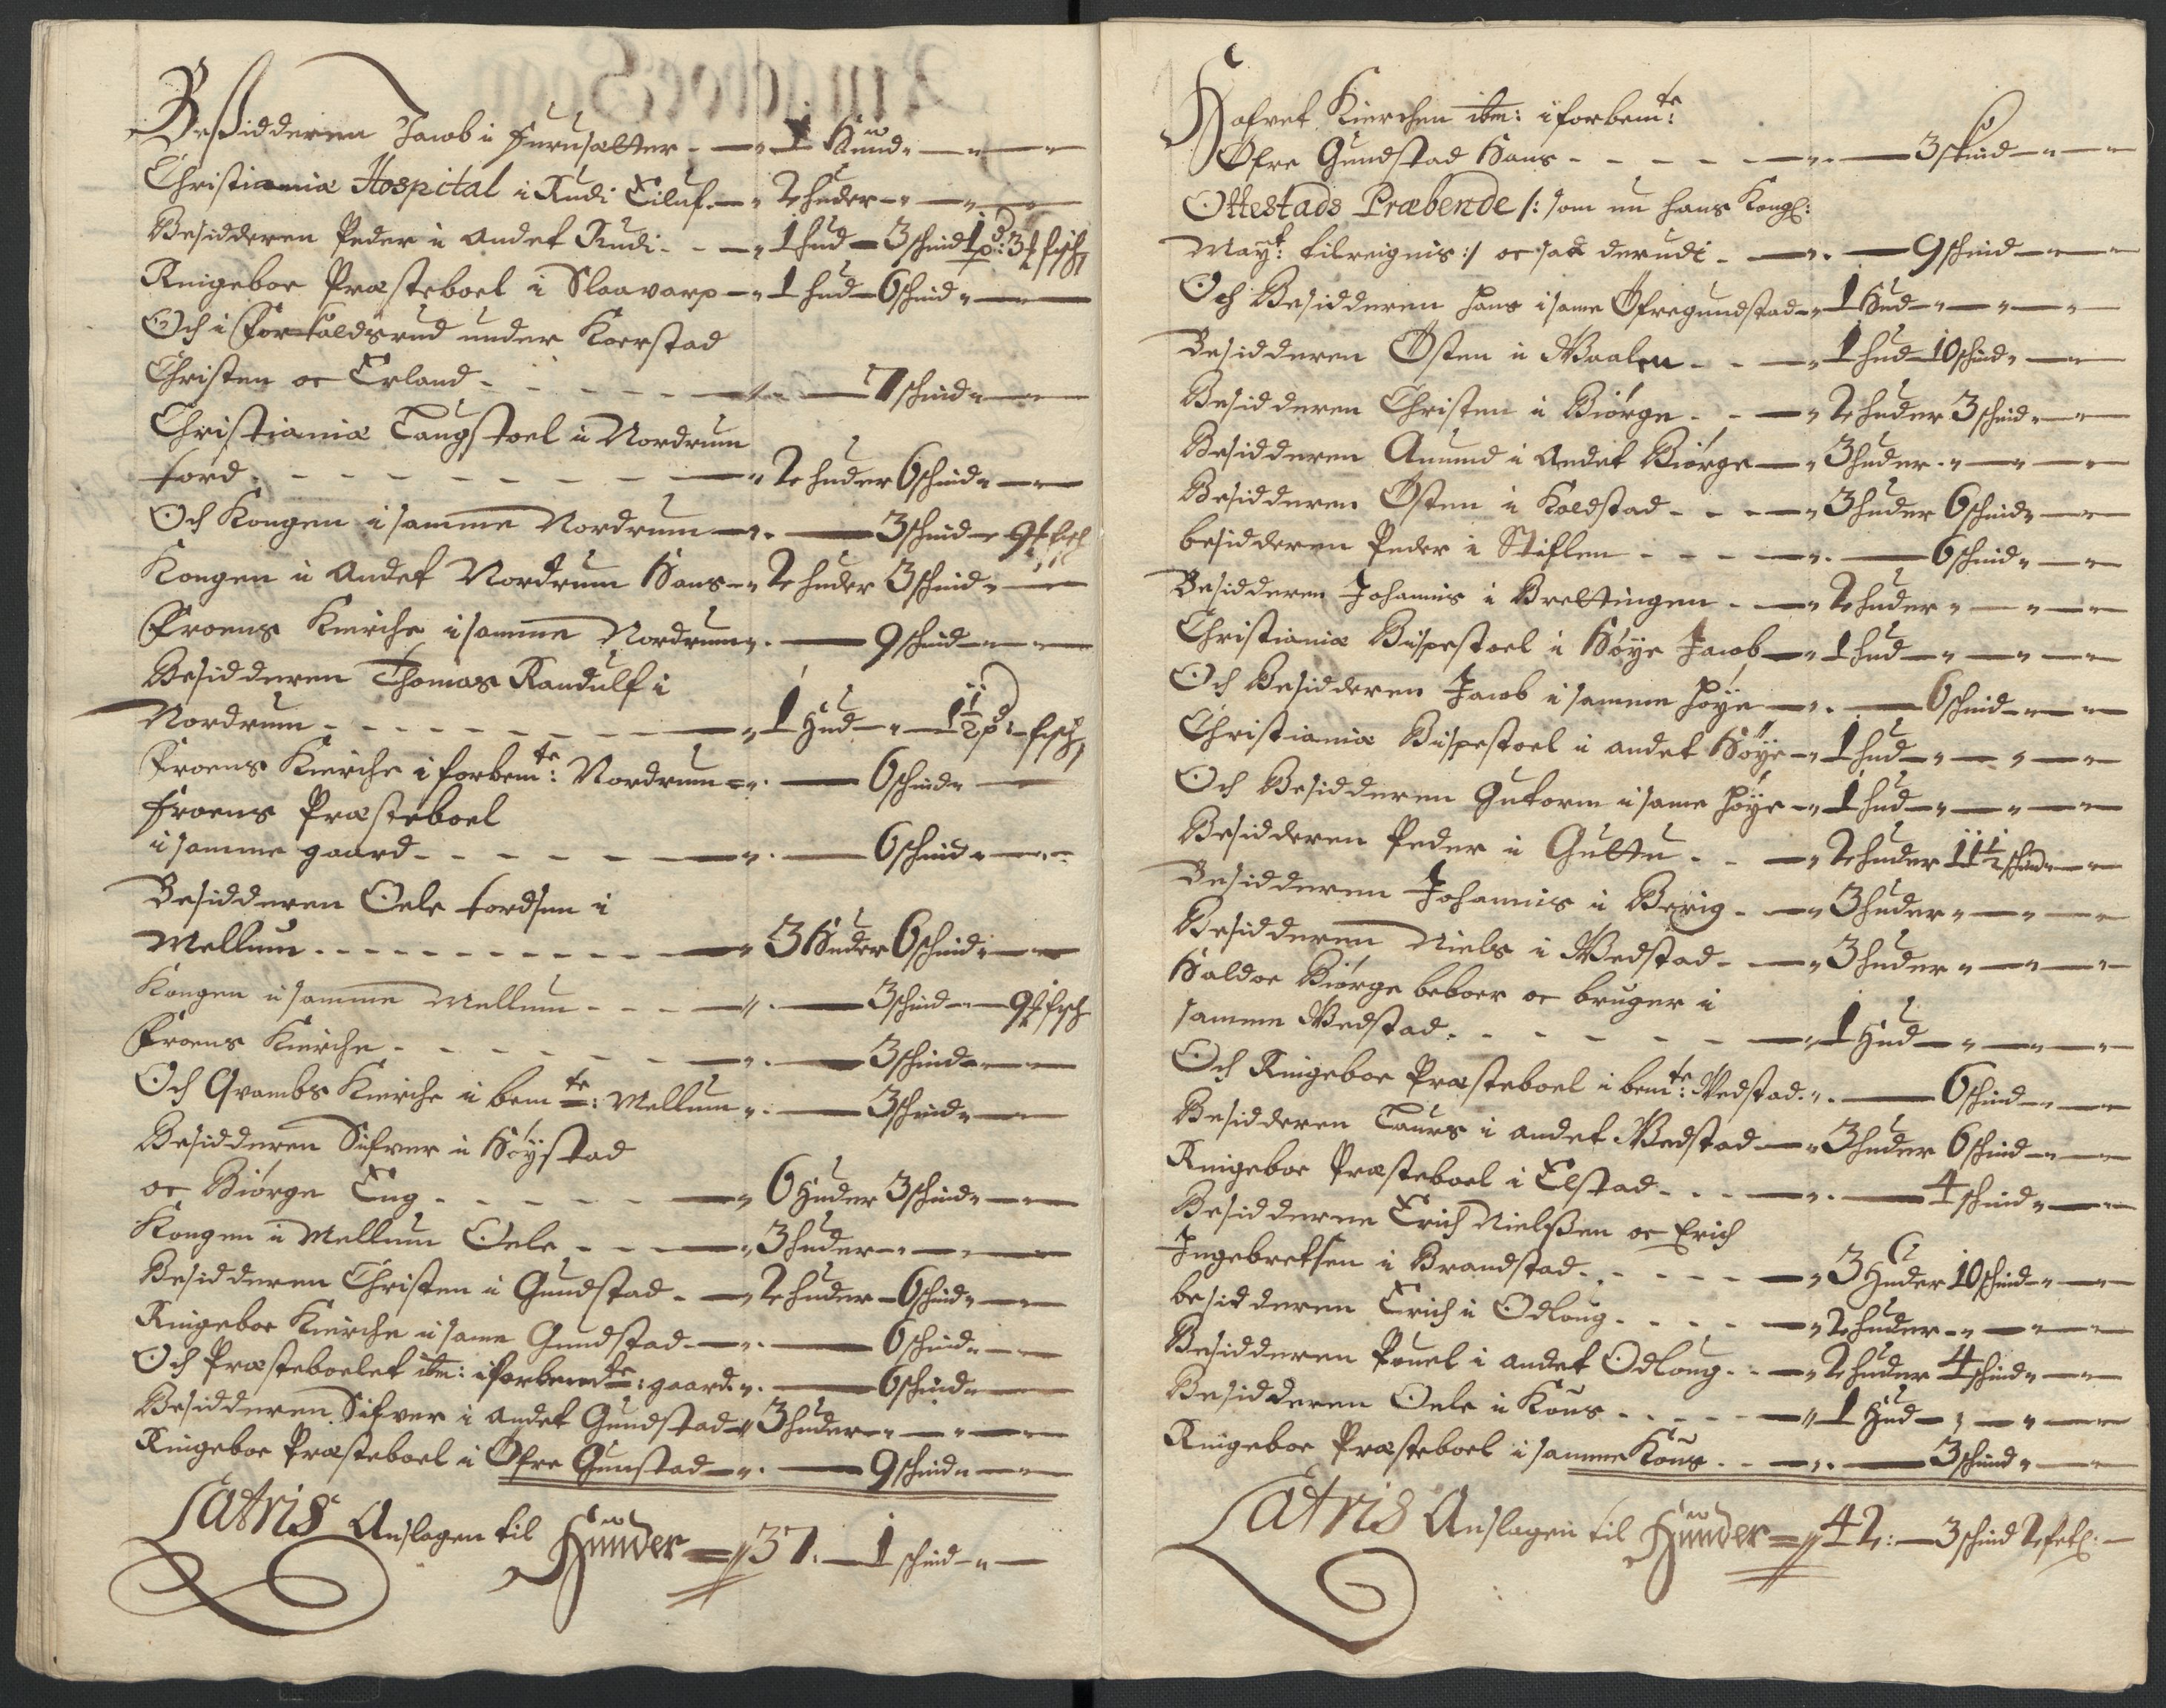 Besidderen Jacob i Furusætter - - 1 Huud
Christianiæ Hospital i Rudi Eiluf - 2 huder
Besidderen Peder i andet Rudi - - 1 hud - 3 schind 1 pd: 3 fisch
Ringeboe Præsteboel i Slaavarp - 1 hud - 6 schind
Och i under Koerstad
Christen oc Erland - - - 7 schind
Christianiæ Laugstoel i Nordrum
tord - - - 2 huder 6 schind
Och Kongen i samme Nordrum - 3 schind - 9 fisch
Kongen i andet Nordrum Hans - 2 huder 3 schind
Froens Kierche i samme Nordrum - 9 schind
Besidderen Thomas Randulf i
Nordrum - - - 1 Hud - 1½ pd: fisch
Froens Kierche i forbemte: Nordrum - 6 schind
froens Præsteboel
i samme gaard - - - 6 schind
Besidderen Oele tordsen i
Mellum - - - 3 Huder 6 schind
Kongen i samme Mellum - - - 3 schind - 9 fisch
Froens Kierche - - - 3 schind
Och Qvambs Kierche i bemte: Mellum - 3 schind
Besidderen Sifver i Höystad
oc Biörge Eng - - - 6 Huder 3 schind
Kongen i Mellum Oele - - - 3 huder
Besidderen Christen i Gundstad - 2 huder - 6 schind
Ringeboe Kierche i same Gundstad - 6 schind
Och Præsteboelet ibm: i forbemdte: gaard - 6 schind
Besidderen Sifver i andet Gundstad - 3 huder
Ringeboe Præsteboel i Öfre Gunstad - 9 schind
Latris Anslagen til Hunder - 37. - 1 schind
Hafvet Kierchen ibm: i forbemte:
Öfre Gundstad Hans - - - 3 skind
Ottestads Præbende /: som nu hans Kongl:
Mayt: tilreignis :/ oc saa derudi - 9 schind
Och Besidderen Hans i same Öfregundstad - 1 Hud
Besidderen Östen i Waalen - - 1 hud 10 schind
Besidderen Christen i Biörge - - 2 huder 3 schind
Besidderen Amund i andet Biörge - 3 huder
Besidderen Östen i Koldstad - - 3 huder 6 schind
besidderen Peder i Stiflen - - - 6 schind
Besidderen Johannis i Brettingen - 2 huder
Christianiæ Bispestoel i Höye Jacob - 1 hud
Och Besidderen Jacob i samme höye - 6 schind
Christianiæ Bispestoel i andet Höye - 1 hud
Och Besidderen Gutorm i same höye - 1 hud
Besidderen Peder i Gultu - - 2 huder 11½ schind
Besidderen Johannis i Berig - - 3 huder
Besidderen Niels i Wedstad - - 3 huder
Haldoe Biörge beboer oc bruger i
samme Wedstad - - - 1 Hud
Och Ringeboe Præsteboel i bemte: Wedstad - 6 schind
Besidderen Laurs i andet Wedstad - 3 huder 6 schind
Ringeboe Præsteboel i Elstad - - - 4 schind
Besidderne Erich Nielssen oc Erich
Ingebretsen i Brandstad - - - 3 Huder 10 schind
besidderen Erich i Odloug - - - 2 huder
Besidderen Pouel i andet Odloug - - 2 huder 4 schind
Besidderen Oele i Kous - - - 1 Hud
Ringeboe Præsteboel i samme Kous - - - 3 schind
Latris Anslagen til Hunder - 42: - 3 schind